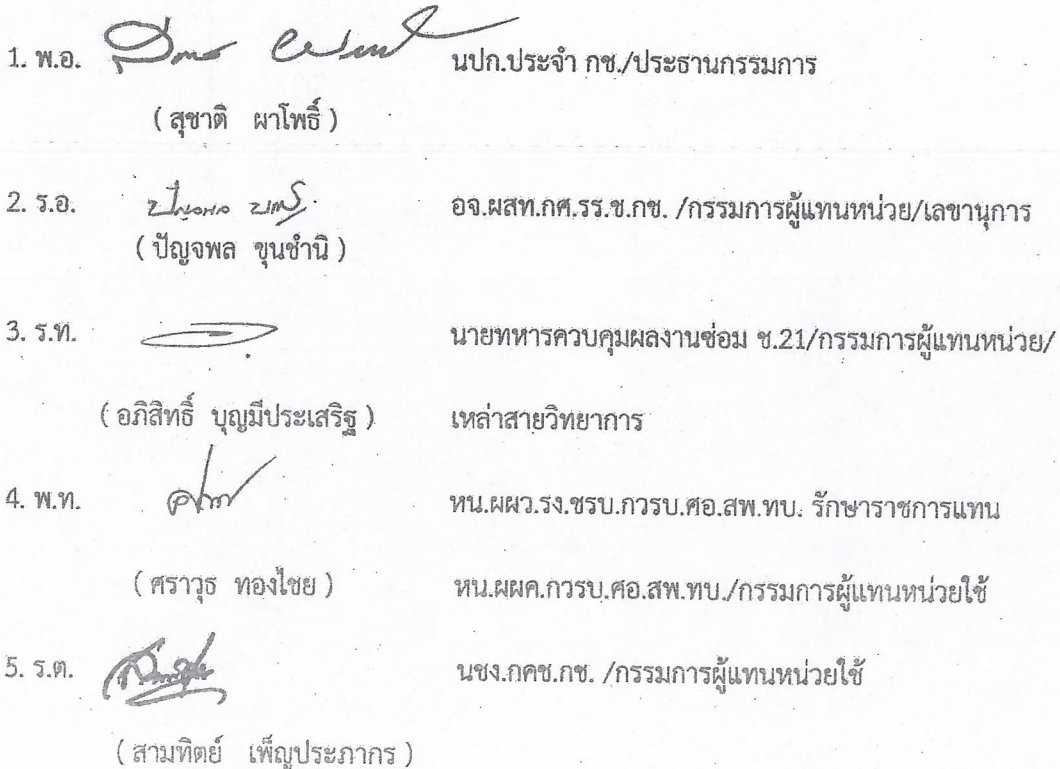 1. พ.อ. นปก.ประจำ กช./ประธานกรรมการ
( สุชาติ ผาโพธิ์ )
2. ร.อ. อจ.ผสท.กศ.รร.ช.กช. /กรรมการผู้แทนหน่วย/เลขานุการ
( ปัญจพล ขุนชำนิ )
3. ร.ท. นายทหารควบคุมผลงานซ่อม ช.21/กรรมการผู้แทนหน่วย/
( อภิสิทธิ์ บุญมีประเสริฐ ) เหล่าสายวิทยาการ
4. พ.ท. หน.ผผว.รง.ชรบ.กวรบ.ศอ.สพ.ทบ. รักษาราชการแทน
( ศราวุธ ทองไชย ) หน.ผผค.กวรบ.ศอ.สพ.ทบ./กรรมการผู้แทนหน่วยใช้
5. ร.ต. นชง.กคช.กช. /กรรมการผู้แทนหน่วยใช้
( สามทิตย์ เพ็ญประภากร )